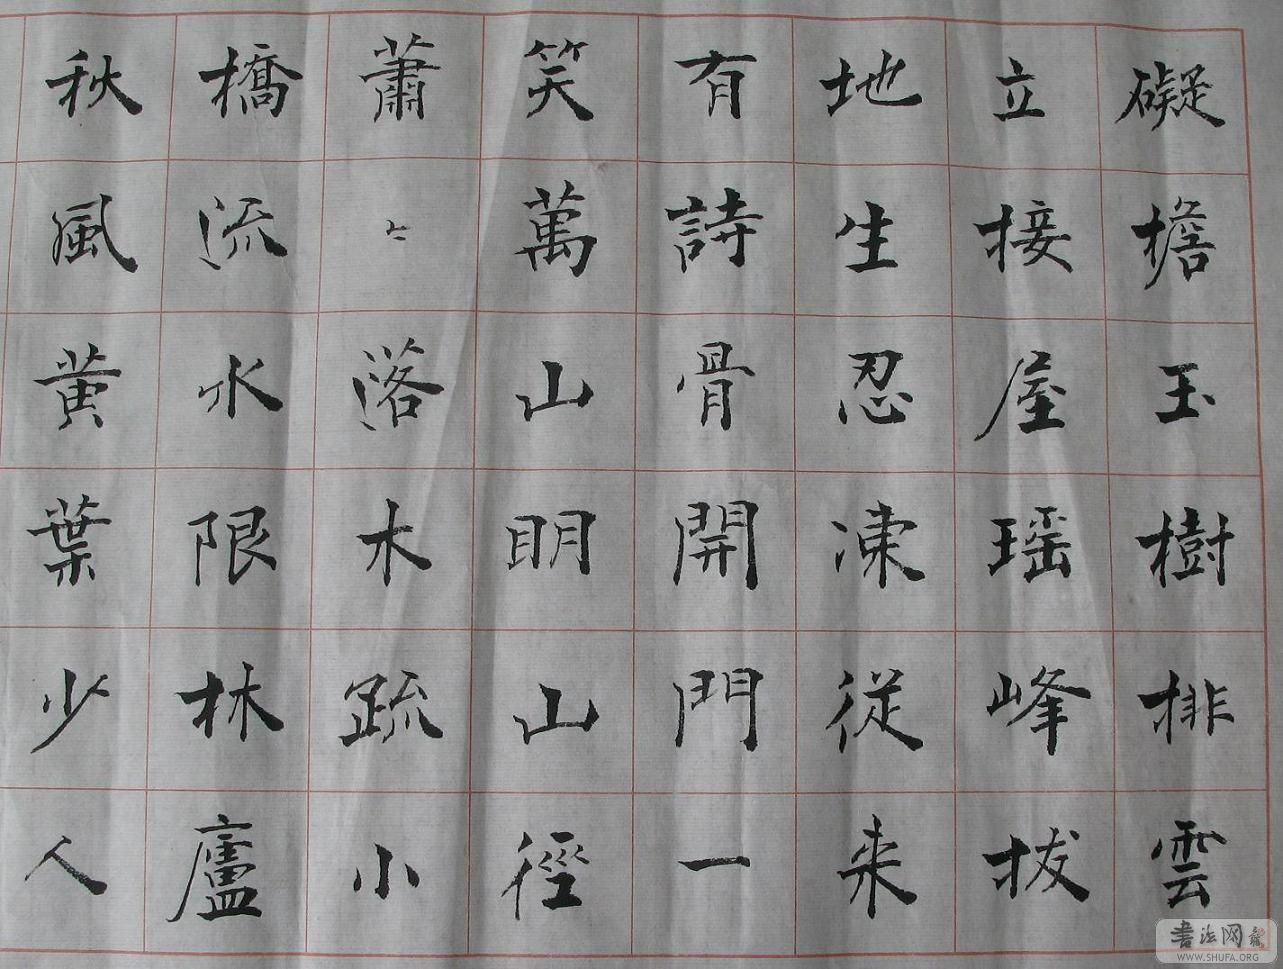 礙檐玉樹排雲
立接屋瑶峰拔
地生忍凍從来
有詩骨開門一
笑萬山明山徑
蕭〻落木疏小
橋流水限林廬
秋風黄葉少人
書法网
WWW.SHUFA.ORG